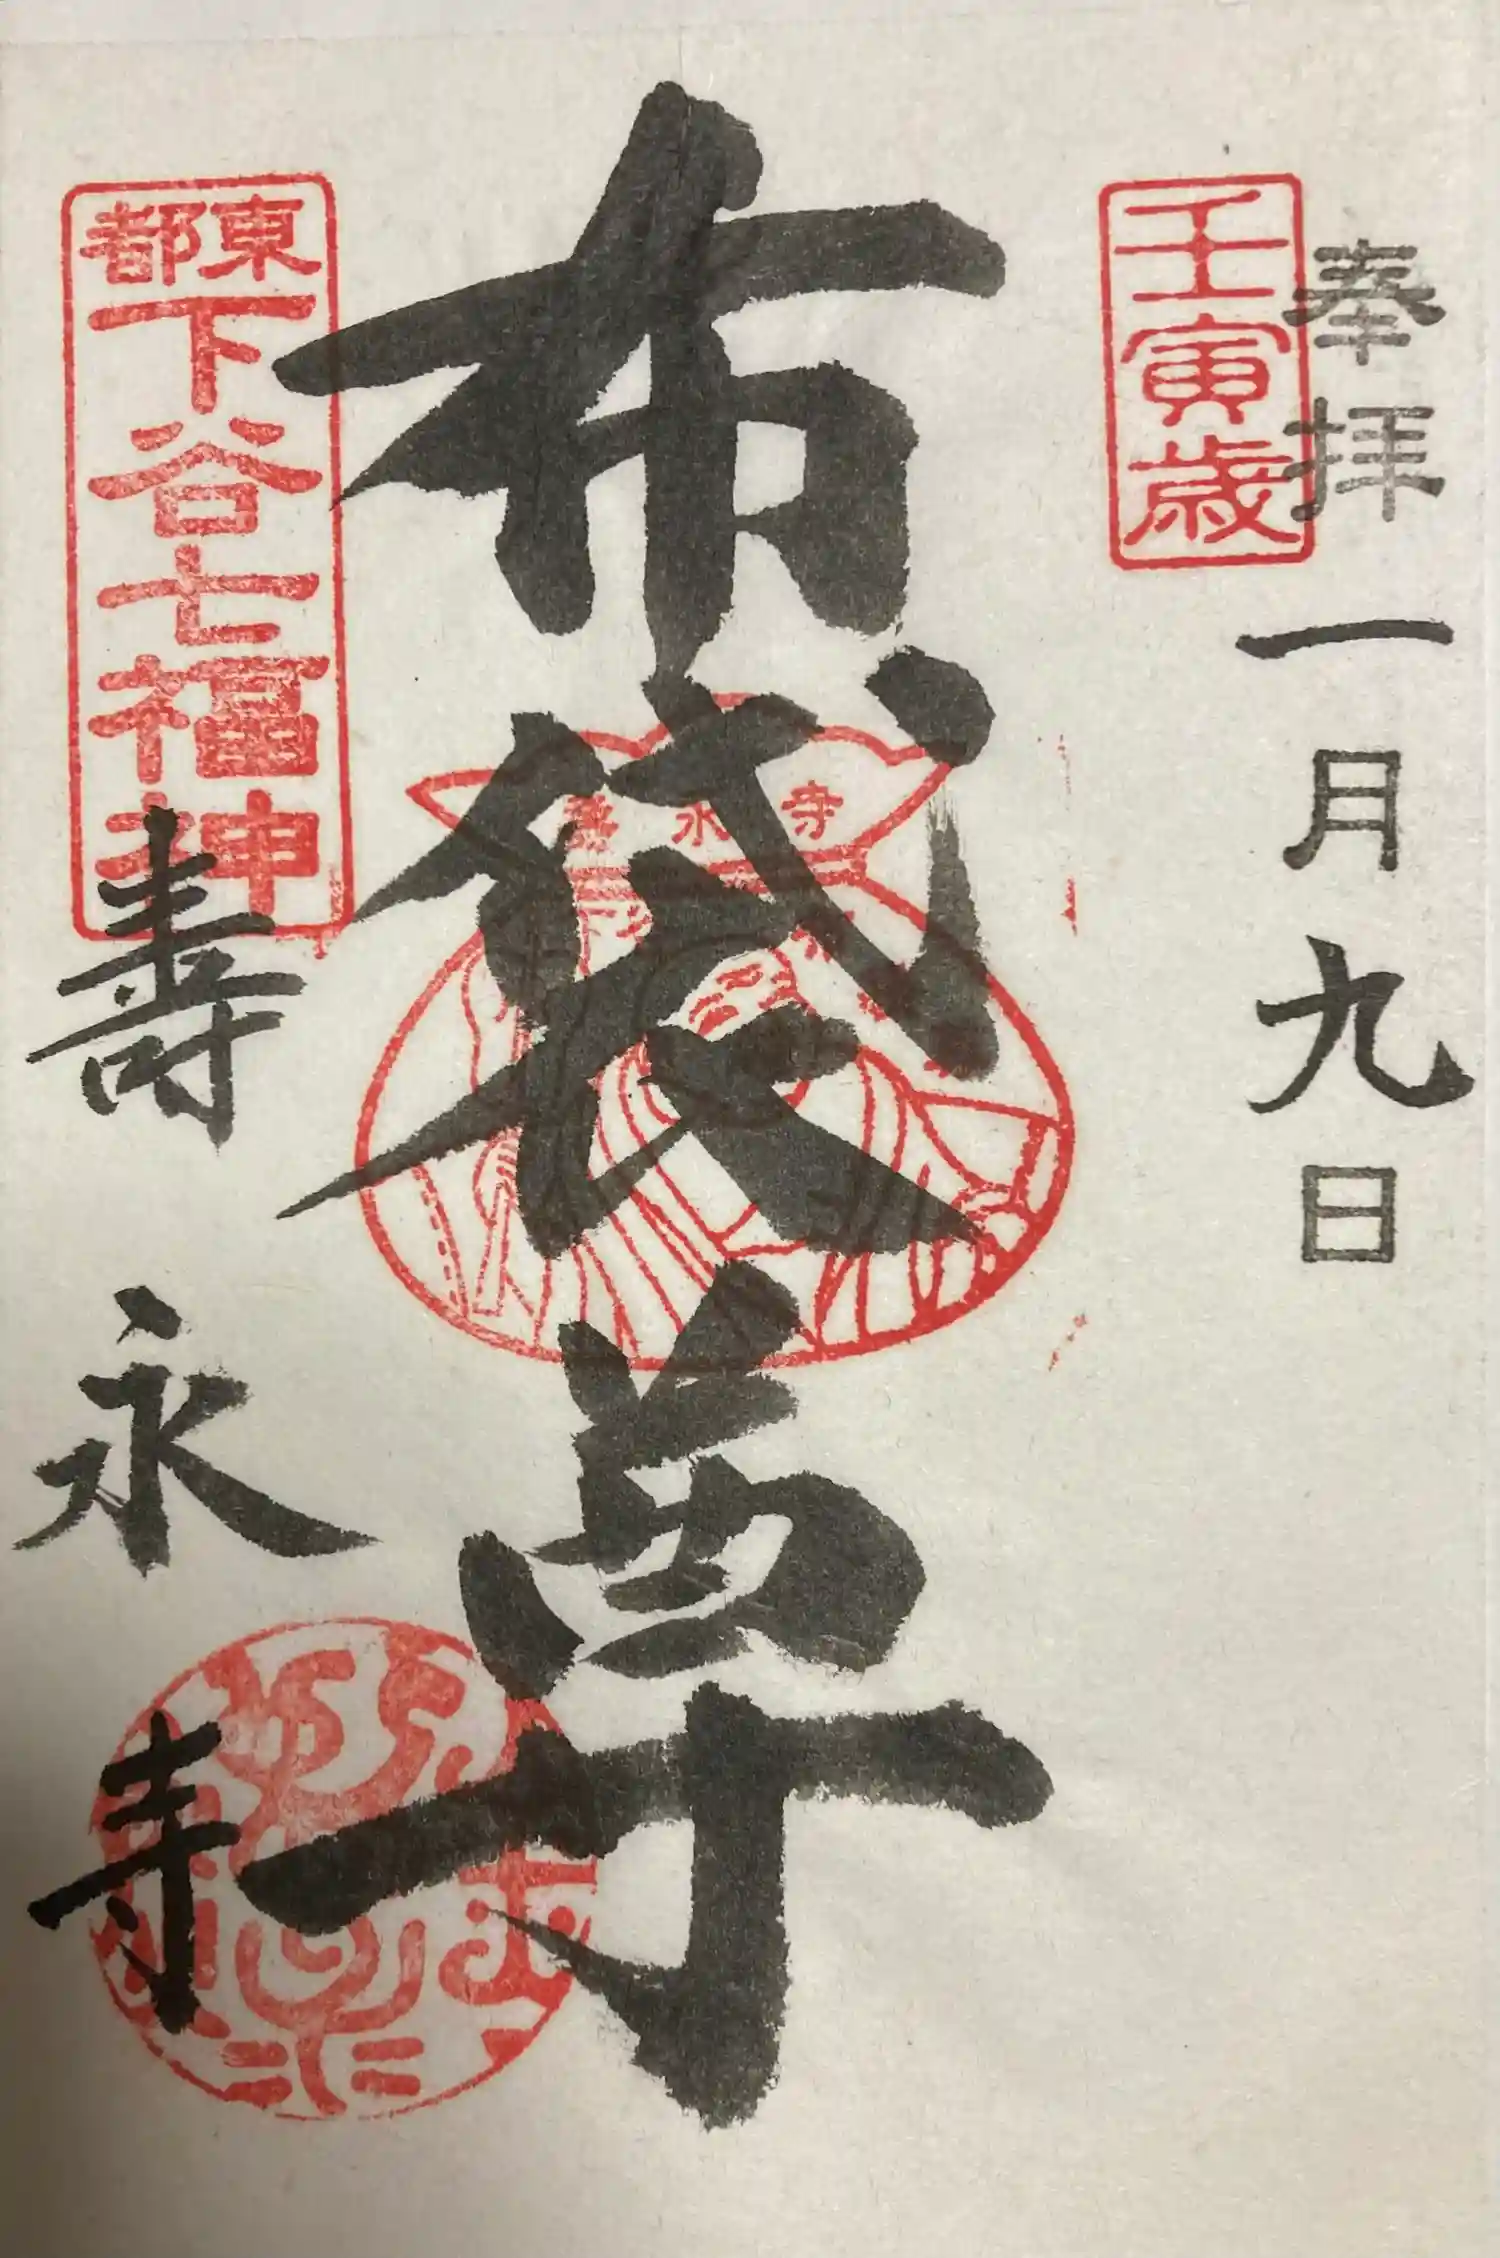 奉拝
一月九日
壬寅歳
布袋尊
壽永寺
東都
下谷七福神
壽永寺